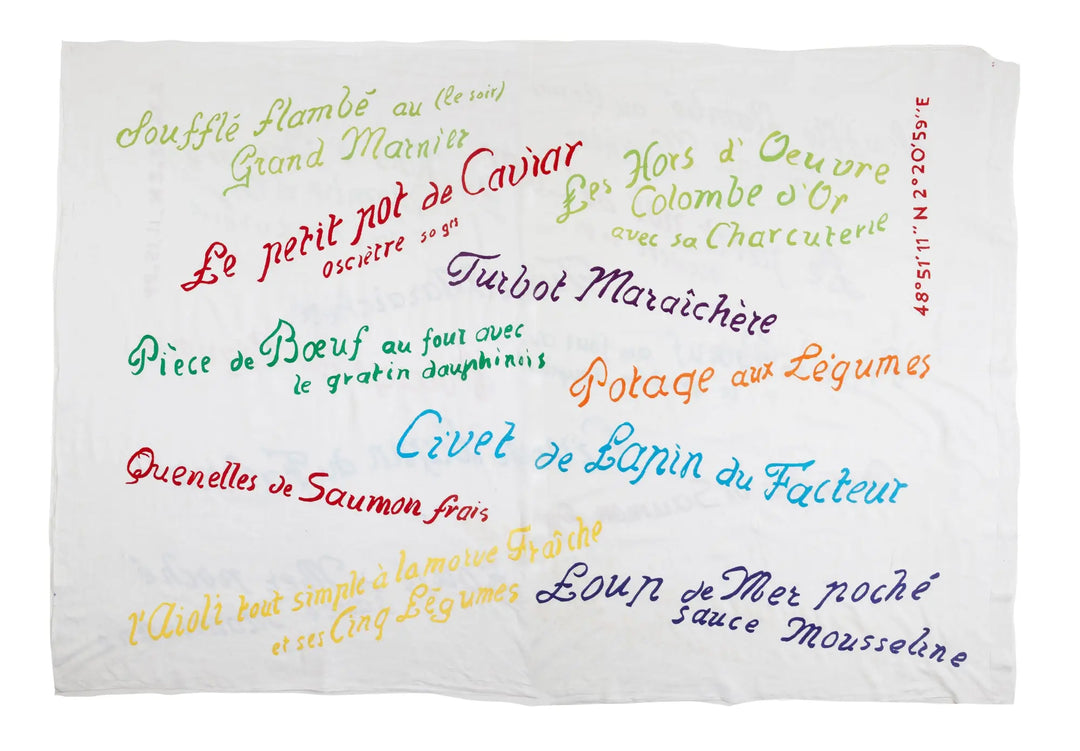 Soufflé flambé au (le soir)
Grand Marnier
Le petit pot de Caviar
osciètre 50 grs
Les Hors d'Oeuvre
Colombe d'Or
avec sa Charcuterie
48°51'11''N 2°20'59''E
Turbot Maraîchère
Pièce de Bœuf au four avec
le gratin dauphinois
Potage aux Légumes
Civet de Lapin du Facteur
Quenelles de Saumon frais
l'Aioli tout simple à la morue Fraîche
et ses Cinq Légumes
Loup de Mer poché
sauce Mousseline